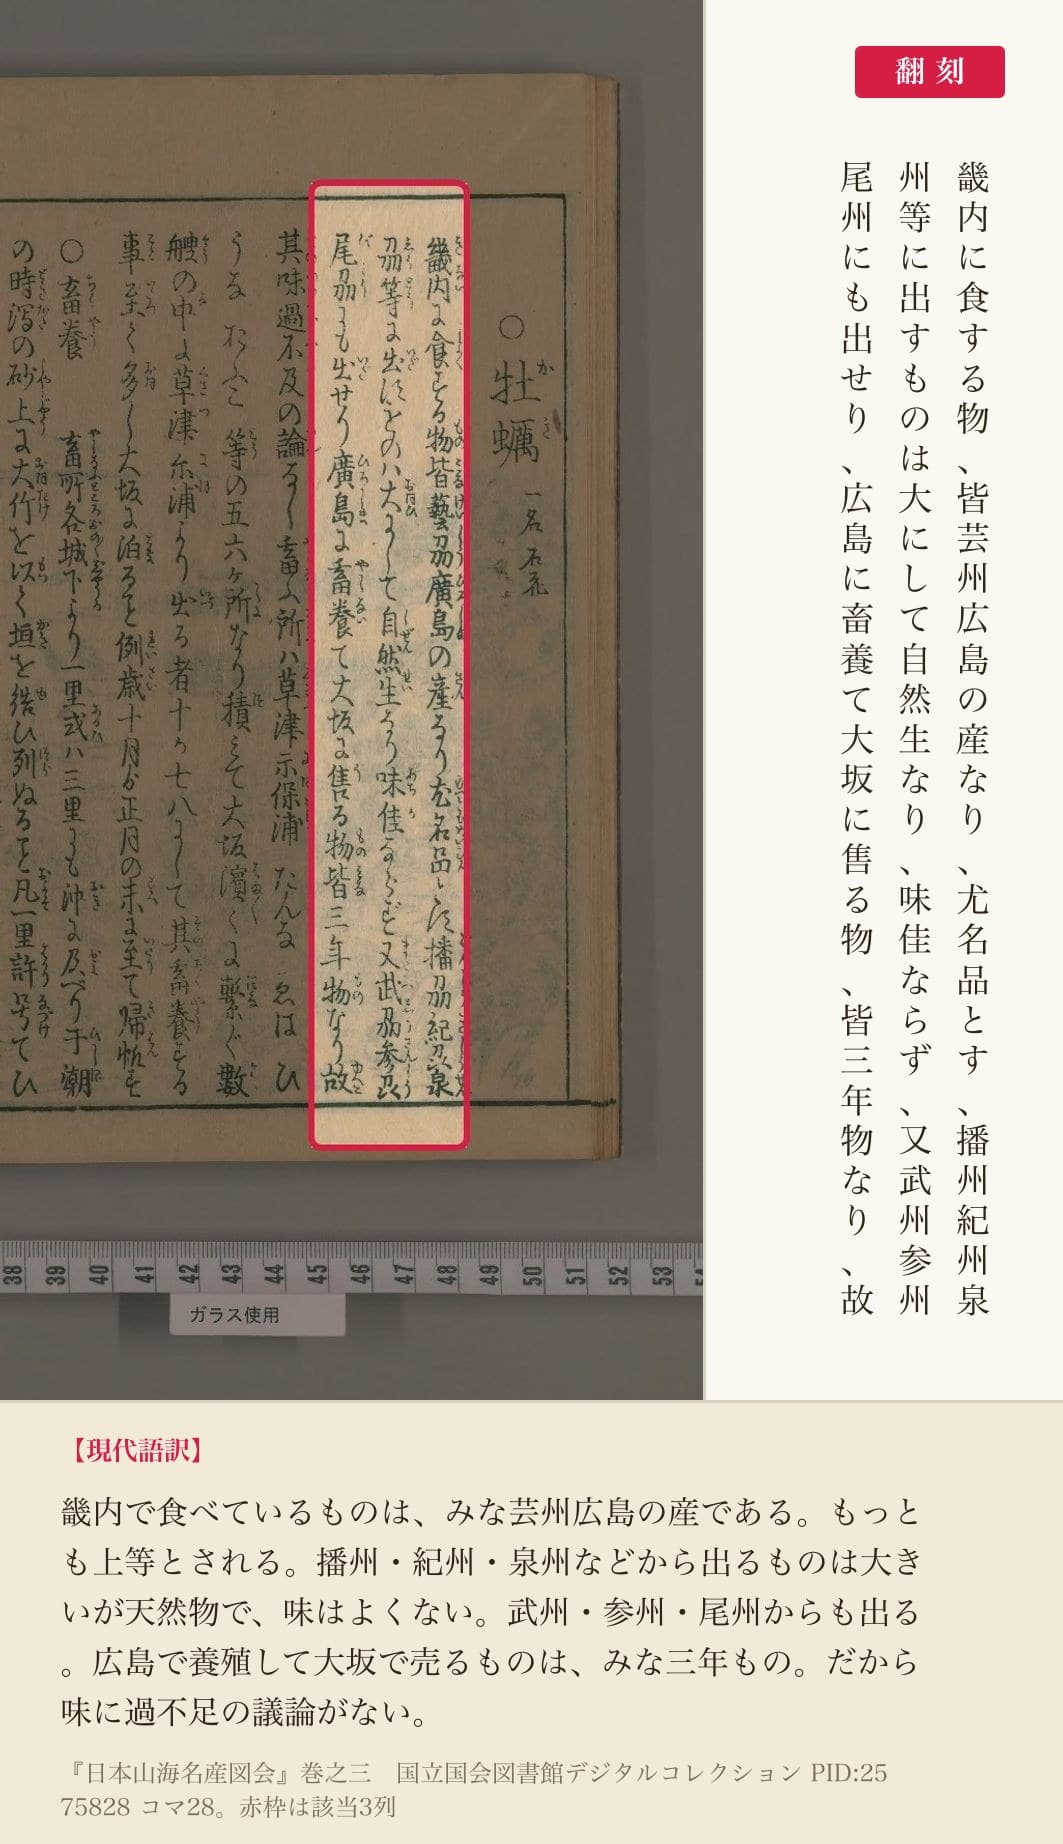 翻刻
畿内に食する物、皆芸州広島の産なり、尤名品とす、播州紀州泉
州等に出すものは大にして自然生なり、味佳ならず、又武州参州
尾州にも出せり、広島に畜養て大坂に售る物、皆三年物なり、故
○牡蠣 一名石花
畿内に食する物皆藝刕廣島の産なり尤名品とす播刕紀刕泉
刕等に出すものハ大にして自然生なり味佳ならず又武刕参刕
尾刕にも出せり廣島に畜養て大坂に售る物皆三年物なり故
其味過不及の論なし畜ふ所ハ草津尓保浦たんな ゑは ひ
うな おふこ 等の五六ヶ所なり積みて大坂濱々に繋ぐ數
艘の中に草津尓浦より出る者十か七八にして其畜養する
事至て多し大坂に泊ること例歳十月ゟ正月の末に至て帰帆す
○畜養 畜所各城下より一里或ハ三里にも沖に及べり干潮
の時潟の砂上に大竹を以て垣を結ひ列ぬること凡一里許号てひ
38 39 40 41 42 43 44 45 46 47 48 49 50 51 52 53
ガラス使用
【現代語訳】
畿内で食べているものは、みな芸州広島の産である。もっと
も上等とされる。播州・紀州・泉州などから出るものは大き
いが天然物で、味はよくない。武州・参州・尾州からも出る
。広島で養殖して大坂で売るものは、みな三年もの。だから
味に過不足の議論がない。
『日本山海名産図会』巻之三　国立国会図書館デジタルコレクション PID:25
75828 コマ28。赤枠は該当3列